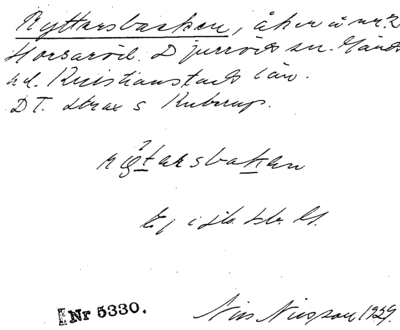 Ryttarsbacken, åker å nr 2
Horsaröd. Djurröds sn. Gärds
hd. Kristianstads län.
DT. strax s Kuberup.
rytarsbaken
Ej i jb
Nr 5330.
Nils Nilsson 1929.